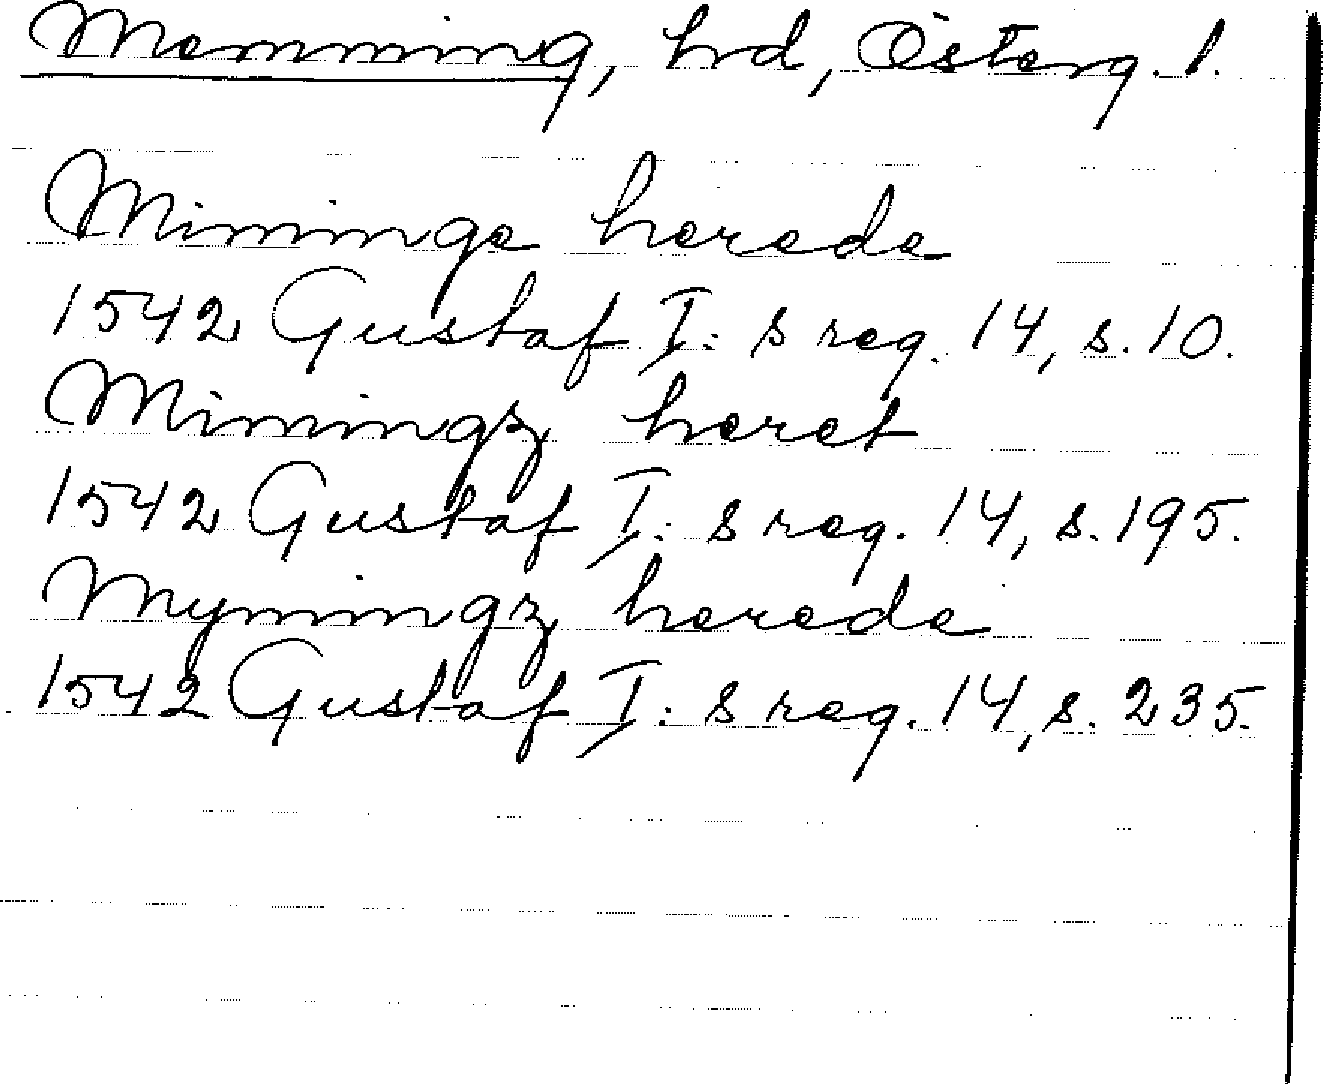 Memming, hrd, Österg. l.
Miminge herede
1542 Gustaf I:s reg. 14, s. 10.
Mimingz heret
1542 Gustaf I:s reg. 14, s. 195.
Mymingz herede
1542 Gustaf I:s reg. 14, s. 235.